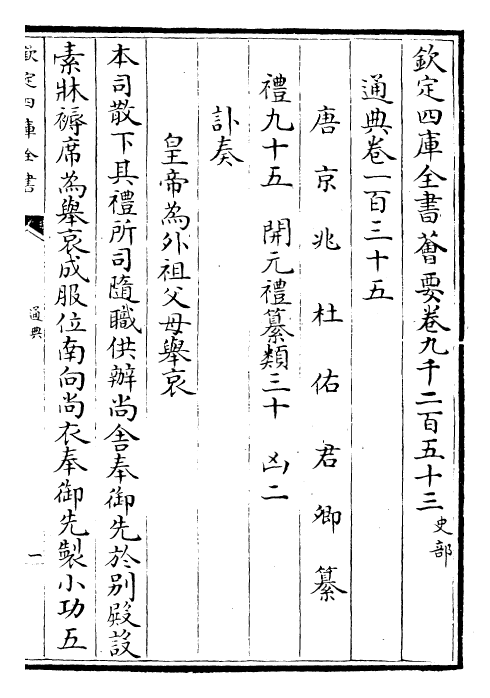 欽定四庫全書薈要卷九千二百五十三史部
通典卷一百三十五
唐京兆杜佑君卿纂
禮九十五 開元禮纂類三十 凶二
訃奏
皇帝為外祖父母舉哀
本司散下其禮所司隨職供辦尚舍奉御先於别殿設
素牀褥席為舉哀成服位南向尚衣奉御先製小功五
欽定四庫全書
通典
一